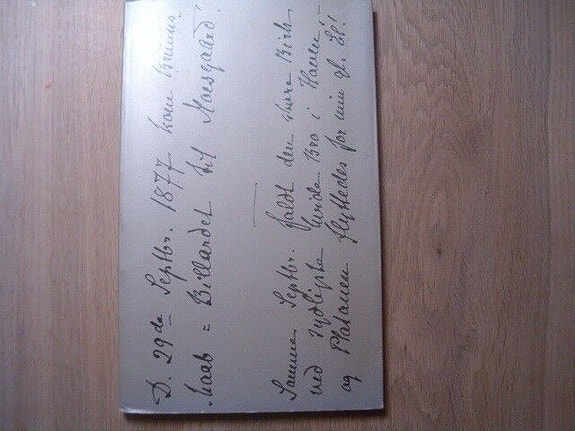 D. 29de Septbr. 1877 kom
= Billardet til Moesgaard.
Samme Septbr. faldt den store Birk
ved sydligste hvide Bro i Haven!
og Platanen flyttedes for min gl.